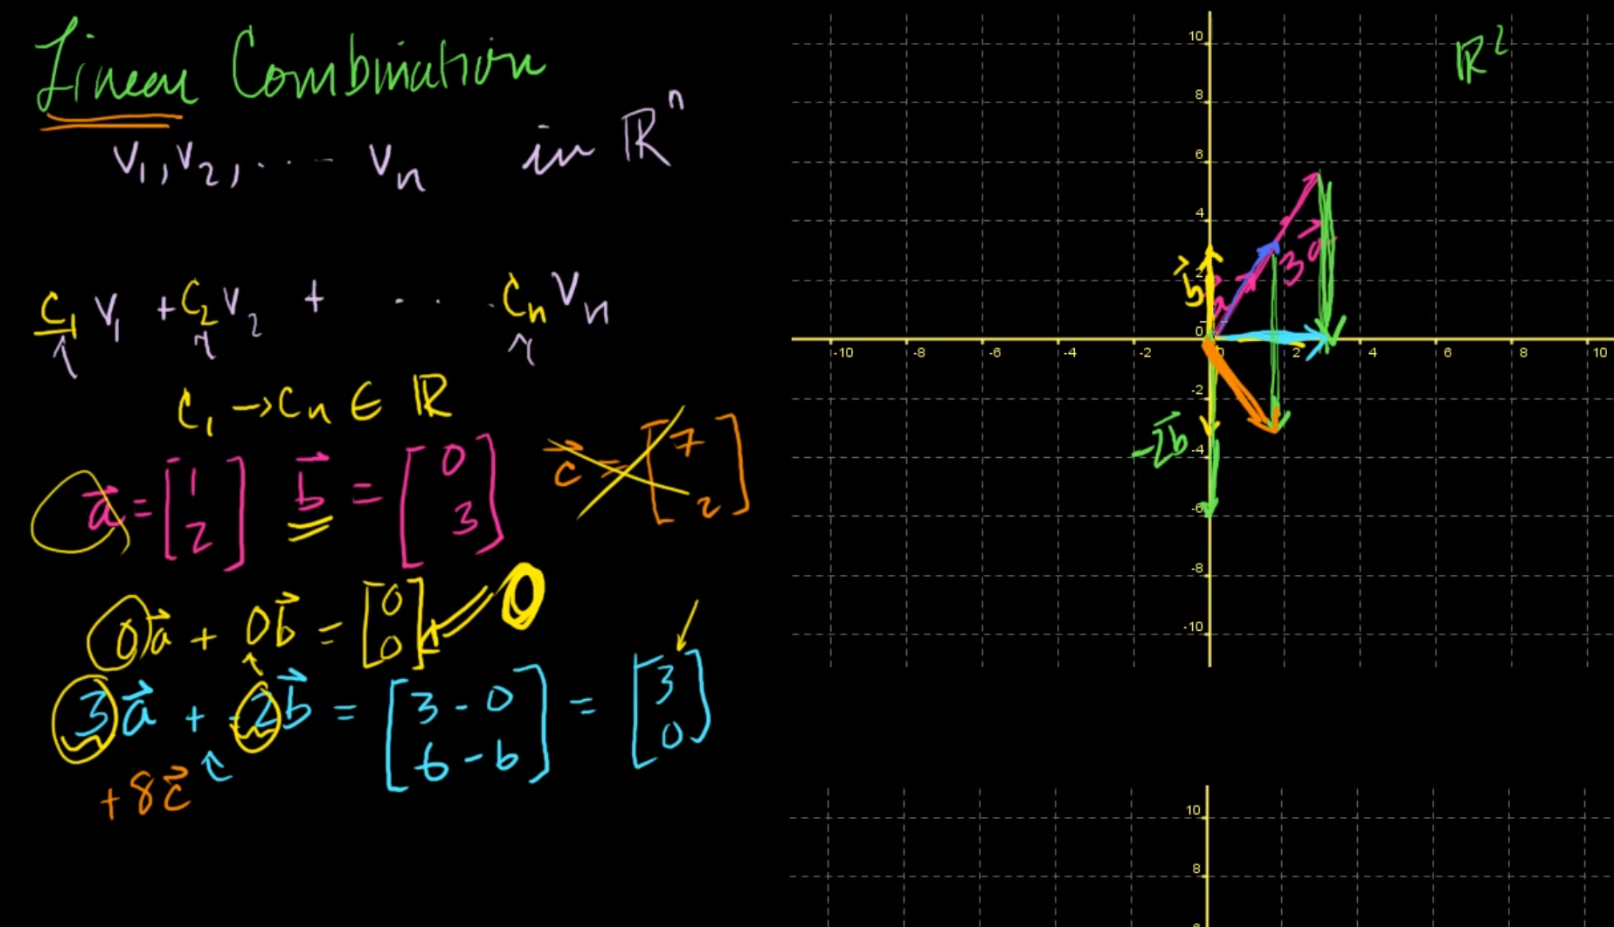 Linear Combination
v₁, v₂, ... vₙ in ℝⁿ
c₁v₁ + c₂v₂ + ... cₙvₙ
c₁ → cₙ ∈ ℝ
a⃗ = [1 2] b⃗ = [0 3] c⃗ = [7 2]
0a⃗ + 0b⃗ = [0 0] 0
3a⃗ + -2b⃗ = [3 - 0 6 - 6] = [3 0]
+8c⃗
ℝ²
10
8
6
4
2
0
-2
-4
-6
-8
-10
-10 -8 -6 -4 -2 0 2 4 6 8 10
b⃗
a⃗
3a⃗
-2b⃗
10
8
6